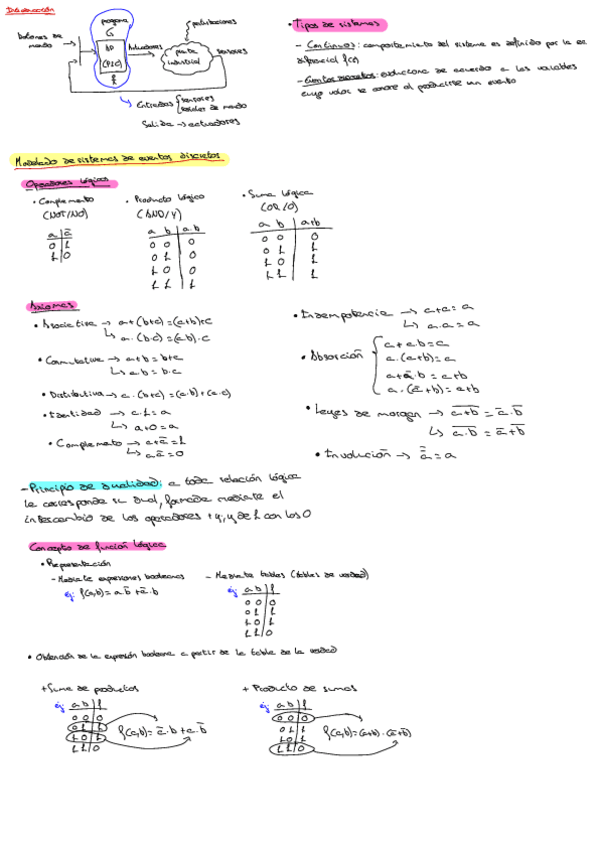 Introducción
programa
perturbaciones
botones de
mando
AP
(PLC)
Actuadores
planta
industrial
sensores
Entradas sensores
botones de mando
Salida → actuadores
• Tipos de sistemas
- Continuos: comportamiento del sistema es definido por la ec
diferencial f(t)
- Eventos discretos: evoluciona de acuerdo a las variables
cuyo valor se conoce al producirse un evento
Modelado de sistemas de eventos discretos
Operadores lógicos
• Complemento
(NOT/NO)
a ā
0 1
1 0
• Producto lógico
(AND/Y)
a b a·b
0 0 0
0 1 0
1 0 0
1 1 1
• Suma lógica
(OR/O)
a b a+b
0 0 0
0 1 1
1 0 1
1 1 1
Axiomas
• Asociativa → a+(b+c)=(a+b)+c
↳ a·(b·c)=(a·b)·c
• Conmutativa → a+b=b+a
↳ a·b=b·a
• Distributiva → a·(b+c)=(a·b)+(a·c)
• Identidad → a·1=a
↳ a+0=a
• Complemento → a+ā=1
↳ a·ā=0
• Indempotencia → a+a=a
↳ a·a=a
• Absorción
a+a·b=a
a·(a+b)=a
a+ā·b=a+b
a·(ā+b)=a+b
• Leyes de morgan → \overline{a+b}=ā·b̄
↳ \overline{a·b}=ā+b̄
• Involución → \overline{ā}=a
- Principio de dualidad: a toda relación lógica
le corresponde su dual, formada mediante el
intercambio de los operadores + y ·, y de 1 con los 0
Concepto de función lógica
• Representación
- Mediante expresiones booleanas
ej: f(a,b)=a·b̄+ā·b
- Mediante tablas (tablas de verdad)
ej: a b f
0 0 0
0 1 1
1 0 1
1 1 0
• Obtención de la expresión booleana a partir de la tabla de la verdad
+ Suma de productos
ej: a b f
0 0 0
0 1 1
1 0 1
1 1 0
f(a,b)=ā·b+a·b̄
+ Producto de sumas
ej: a b f
0 0 0
0 1 1
1 0 1
1 1 0
f(a,b)=(a+b)·(ā+b̄)